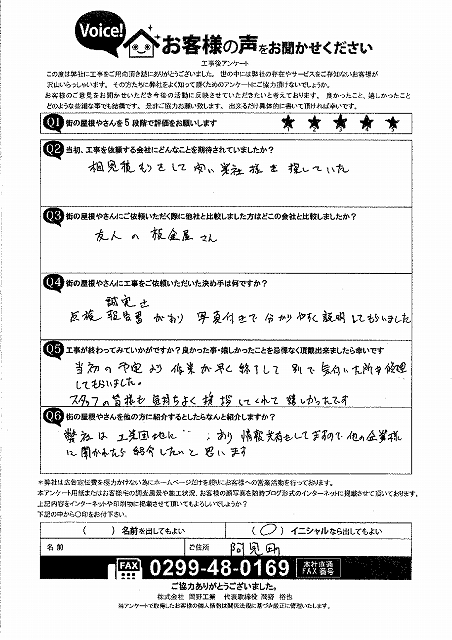 Voice!
お客様の声をお聞かせください
工事後アンケート
この度は弊社に工事をご用命頂き誠にありがとうございました。世の中には弊社の存在やサービスをご存知ないお客様が
沢山いらっしゃいます。その方たちに弊社をよく知って頂くためのアンケートにご協力頂けないでしょうか。
お客様のご意見をお聞かせいただき今後の活動に反映させていただきたいと考えております。良かったこと、嬉しかったこと
どのような些細な事でも結構です。是非ご協力お願い致します。出来るだけ具体的に書いて頂ければ幸いです。
Q1 街の屋根やさんを5段階で評価をお願いします ★ ★ ★ ★ ★
Q2 当初、工事を依頼する会社にどんなことを期待されていましたか?
相見積もりをして 良い業社様を探していた
Q3 街の屋根やさんにご依頼いただく際に他社と比較しました方はどこの会社と比較しましたか?
友人の板金屋さん
Q4 街の屋根やさんに工事をご依頼いただいた決め手は何ですか?
誠実さ
点検報告書があり 写真付きで分かりやすく説明してもらいました
Q5 工事が終わってみていかがですか?良かった事・嬉しかったことを忌憚なく頂戴出来ましたら幸いです
当初の予定より作業が早く終了して 別で気付いた所を修理
してもらいました。
スタッフの皆様も気持ちよく挨拶してくれて嬉しかったです
Q6 街の屋根やさんを他の方に紹介するとしたらなんと紹介しますか?
弊社は工業団地に あり 情報共有をしてますので他の企業様
に聞かれたら紹介したいと思います
*弊社は広告宣伝費を極力かけない為にホームページだけを頼りにお客様への営業活動を行っております。
本アンケート用紙またはお客様宅の調査風景や施工状況、お客様の顔写真を随時ブログ形式のインターネットに掲載させて頂いております。
上記内容をインターネットや印刷物に掲載させて頂いてもよろしいでしょうか?
下記の中から○印をお付下さい。
( ) 名前を出してもよい (○) イニシャルなら出してもよい
名前 ご住所 阿見町
FAX 0299-48-0169 本社直通 FAX番号
ご協力ありがとうございました。
株式会社 岡野工業 代表取締役 岡野 裕也
当アンケートで取得したお客様の個人情報は関係法規に基づき厳正に管理いたします。